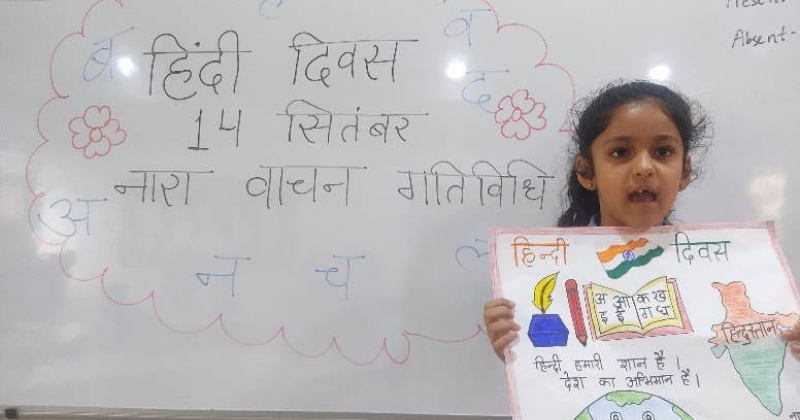 Absent-
ब व
हिंदी दिवस
द
14 सितंबर
नारा वाचन गतिविधि
अ
न च
हिन्दी दिवस
अ आ क ख
इ ई ग घ
हिंदुस्तान
हिन्दी हमारी शान है।
देश का अभिमान है।